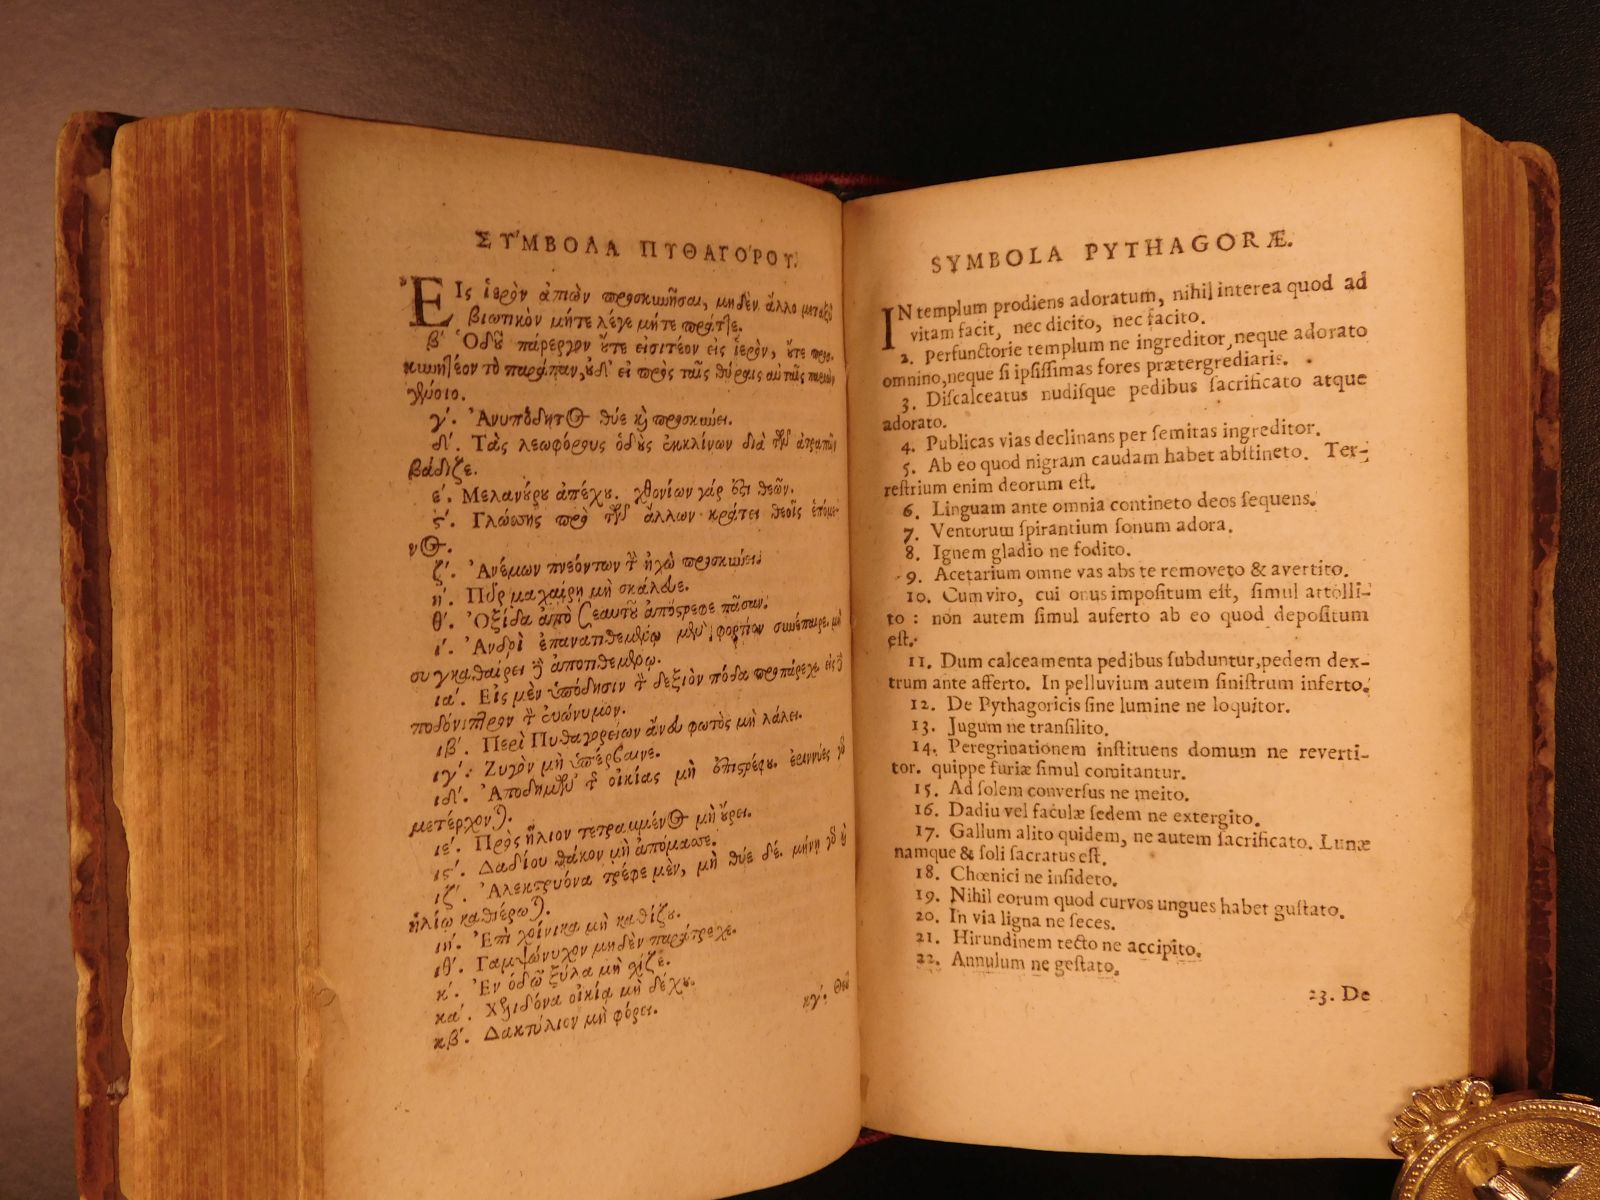 ΣΥ'ΜΒΟΛΑ ΠΥΘΑΓΟ'ΡΟΥ.
ἘΙς ἱερὸν ἀπιὼν προσκυνῆσαι, μηδὲν ἄλλο μεταξὺ
βιωτικὸν μήτε λέγε μήτε πράττε.
β΄ Ὁδοῦ πάρεργον οὔτε εἰσιτέον εἰς ἱερὸν, οὔτε προσ-
κυνητέον τὸ παράπαν, οὐδ' εἰ πρὸς ταῖς θύραις αὐταῖς παριὼν
γένοιο.
γ΄. Ἀνυπόδητος θύε καὶ προσκύνει.
δ΄. Τὰς λεωφόρους ὁδοὺς ἐκκλίνων διὰ τῶν ἀτραπῶν
βάδιζε.
ε΄. Μελανούρου ἀπέχου. χθονίων γάρ ἐστι θεῶν.
ϛ΄. Γλώσσης πρὸ τῶν ἄλλων κράτει θεοῖς ἑπόμε-
νος.
ζ΄. Ἀνέμων πνεόντων τὴν ἠχὼ προσκύνει.
η΄. Πῦρ μαχαίρῃ μὴ σκάλευε.
θ΄. Ὀξίδα ἀπὸ σεαυτοῦ ἀπόστρεφε πᾶσαν.
ι΄. Ἀνδρὶ ἐπανατιθεμένῳ μὲν φορτίον συνέπαιρε. μὴ
συγκαθαίρει δὲ ἀποτιθεμένῳ.
ια΄. Εἰς μὲν ὑπόδησιν τὸν δεξιὸν πόδα προπάρεχε. εἰς δὲ
ποδόνιπτρον τὸν εὐώνυμον.
ιβ΄. Περὶ Πυθαγορείων ἄνευ φωτὸς μὴ λάλει.
ιγ΄. Ζυγὸν μὴ ὑπέρβαινε.
ιδ΄. Ἀποδημῶν τῆς οἰκίας μὴ ἐπιστρέφου. ἐριννύες γὰρ
μετέρχονται.
ιε΄. Πρὸς ἥλιον τετραμμένος μὴ οὔρει.
ιϛ΄. Δαδίου θάκον μὴ ἀπόμασσε.
ιζ΄. Ἀλεκτρυόνα τρέφε μὲν, μὴ θύε δέ. μήνῃ γὰρ καὶ
ἡλίῳ καθιέρωται.
ιη΄. Ἐπὶ χοίνικα μὴ καθίζου.
ιθ΄. Γαμψώνυχον μηδὲν παράτρεχε.
κ΄. Ἐν ὁδῷ ξύλα μὴ σχίζε.
κα΄. Χελιδόνα οἰκίᾳ μὴ δέχου.
κβ΄. Δακτύλιον μὴ φόρει.
κγ΄. Θεοῦ
SYMBOLA PYTHAGORÆ.
IN templum prodiens adoratum, nihil interea quod ad
vitam facit, nec dicito, nec facito.
2. Perfunctorie templum ne ingreditor, neque adorato
omnino, neque si ipsissimas fores prætergrediaris.
3. Discalceatus nudisque pedibus sacrificato atque
adorato.
4. Publicas vias declinans per semitas ingreditor.
5. Ab eo quod nigram caudam habet abstineto. Ter-
restrium enim deorum est.
6. Linguam ante omnia contineto deos sequens.
7. Ventorum spirantium sonum adora.
8. Ignem gladio ne fodito.
9. Acetarium omne vas abs te removeto & avertito.
10. Cum viro, cui onus impositum est, simul attolli-
to : non autem simul auferto ab eo quod depositum
est.
11. Dum calceamenta pedibus subduntur, pedem dex-
trum ante afferto. In pelluvium autem sinistrum inferto.
12. De Pythagoricis sine lumine ne loquitor.
13. Jugum ne transilito.
14. Peregrinationem instituens domum ne reverti-
tor. quippe furiæ simul comitantur.
15. Ad solem conversus ne meito.
16. Dadiu vel faculæ sedem ne extergito.
17. Gallum alito quidem, ne autem sacrificato. Lunæ
namque & soli sacratus est.
18. Chœnici ne insideto.
19. Nihil eorum quod curvos ungues habet gustato.
20. In via ligna ne seces.
21. Hirundinem tecto ne accipito.
22. Annulum ne gestato.
23. De